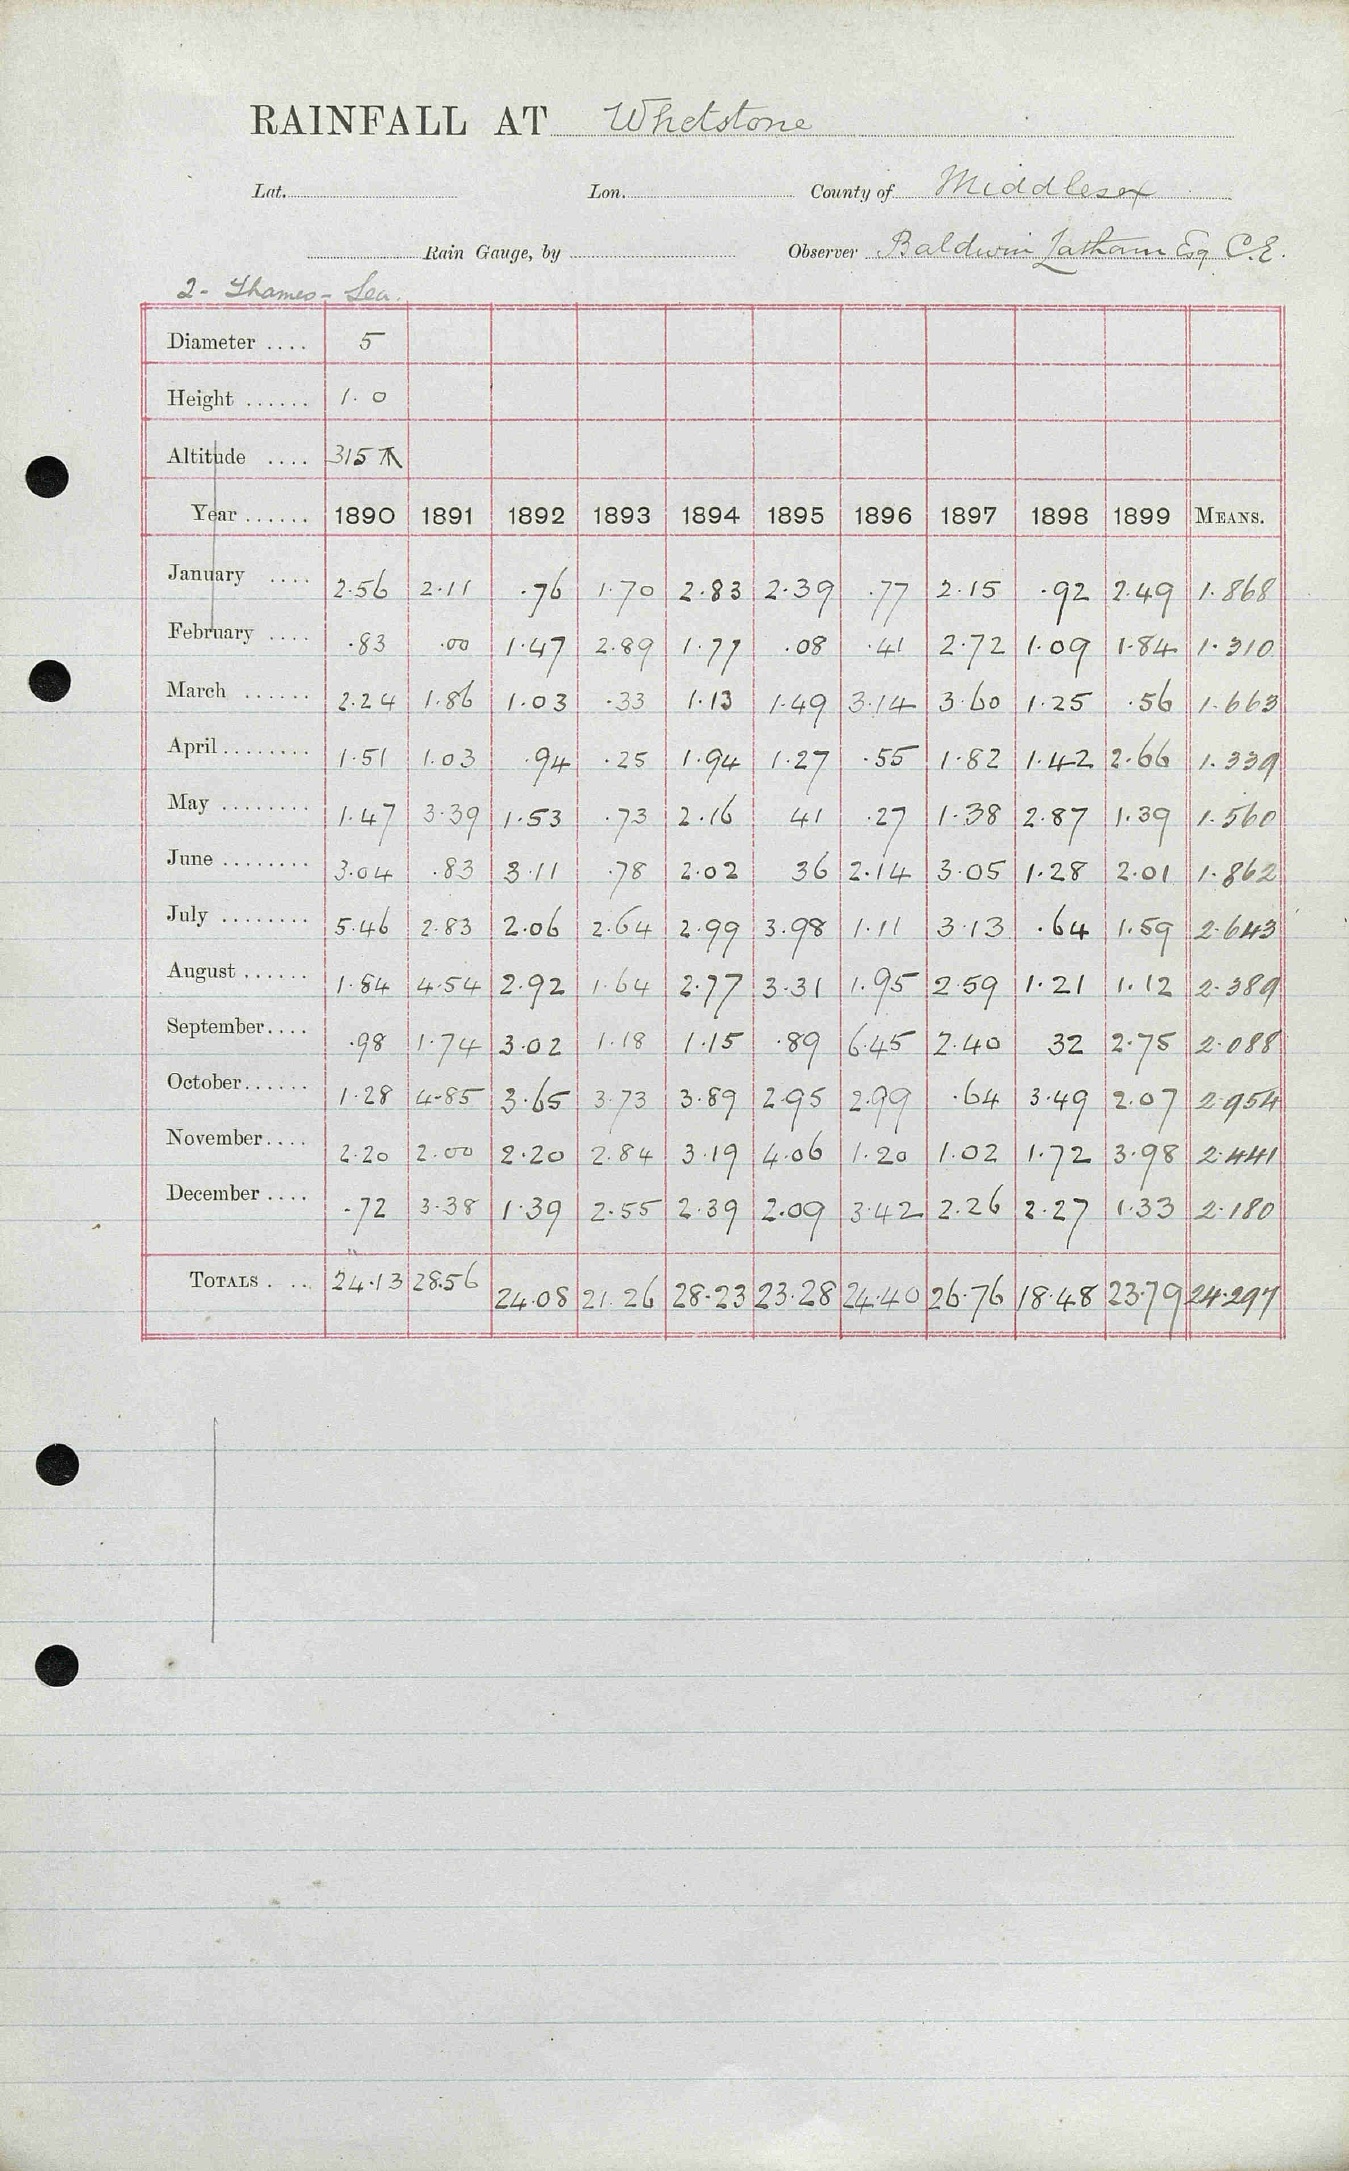 RAINFALL AT Whetstone
Lat. Lon. County of Middlesex
Rain Gauge, by Observer Baldwin Latham Esq C.E.
2 - Thames - Lea.
Diameter .... 5
Height ...... 1.0
Altitude .... 315
Year ...... 1890 1891 1892 1893 1894 1895 1896 1897 1898 1899 MEANS.
January .... 2.56 2.11 .76 1.70 2.83 2.39 .77 2.15 .92 2.49 1.868
February .... .83 .00 1.47 2.89 1.77 .08 .41 2.72 1.09 1.84 1.310
March ...... 2.24 1.86 1.03 .33 1.13 1.49 3.14 3.60 1.25 .56 1.663
April ........ 1.51 1.03 .94 .25 1.94 1.27 .55 1.82 1.42 2.66 1.339
May ........ 1.47 3.39 1.53 .73 2.16 41 .27 1.38 2.87 1.39 1.560
June ........ 3.04 .83 3.11 .78 2.02 36 2.14 3.05 1.28 2.01 1.862
July ........ 5.46 2.83 2.06 2.64 2.99 3.98 1.11 3.13 .64 1.59 2.643
August ...... 1.84 4.54 2.92 1.64 2.77 3.31 1.95 2.59 1.21 1.12 2.389
September .... .98 1.74 3.02 1.18 1.15 .89 6.45 2.40 32 2.75 2.088
October ...... 1.28 4.85 3.65 3.73 3.89 2.95 2.99 .64 3.49 2.07 2.954
November .... 2.20 2.00 2.20 2.84 3.19 4.06 1.20 1.02 1.72 3.98 2.441
December .... .72 3.38 1.39 2.55 2.39 2.09 3.42 2.26 2.27 1.33 2.180
TOTALS .... 24.13 28.56 24.08 21.26 28.23 23.28 24.40 26.76 18.48 23.79 24.297